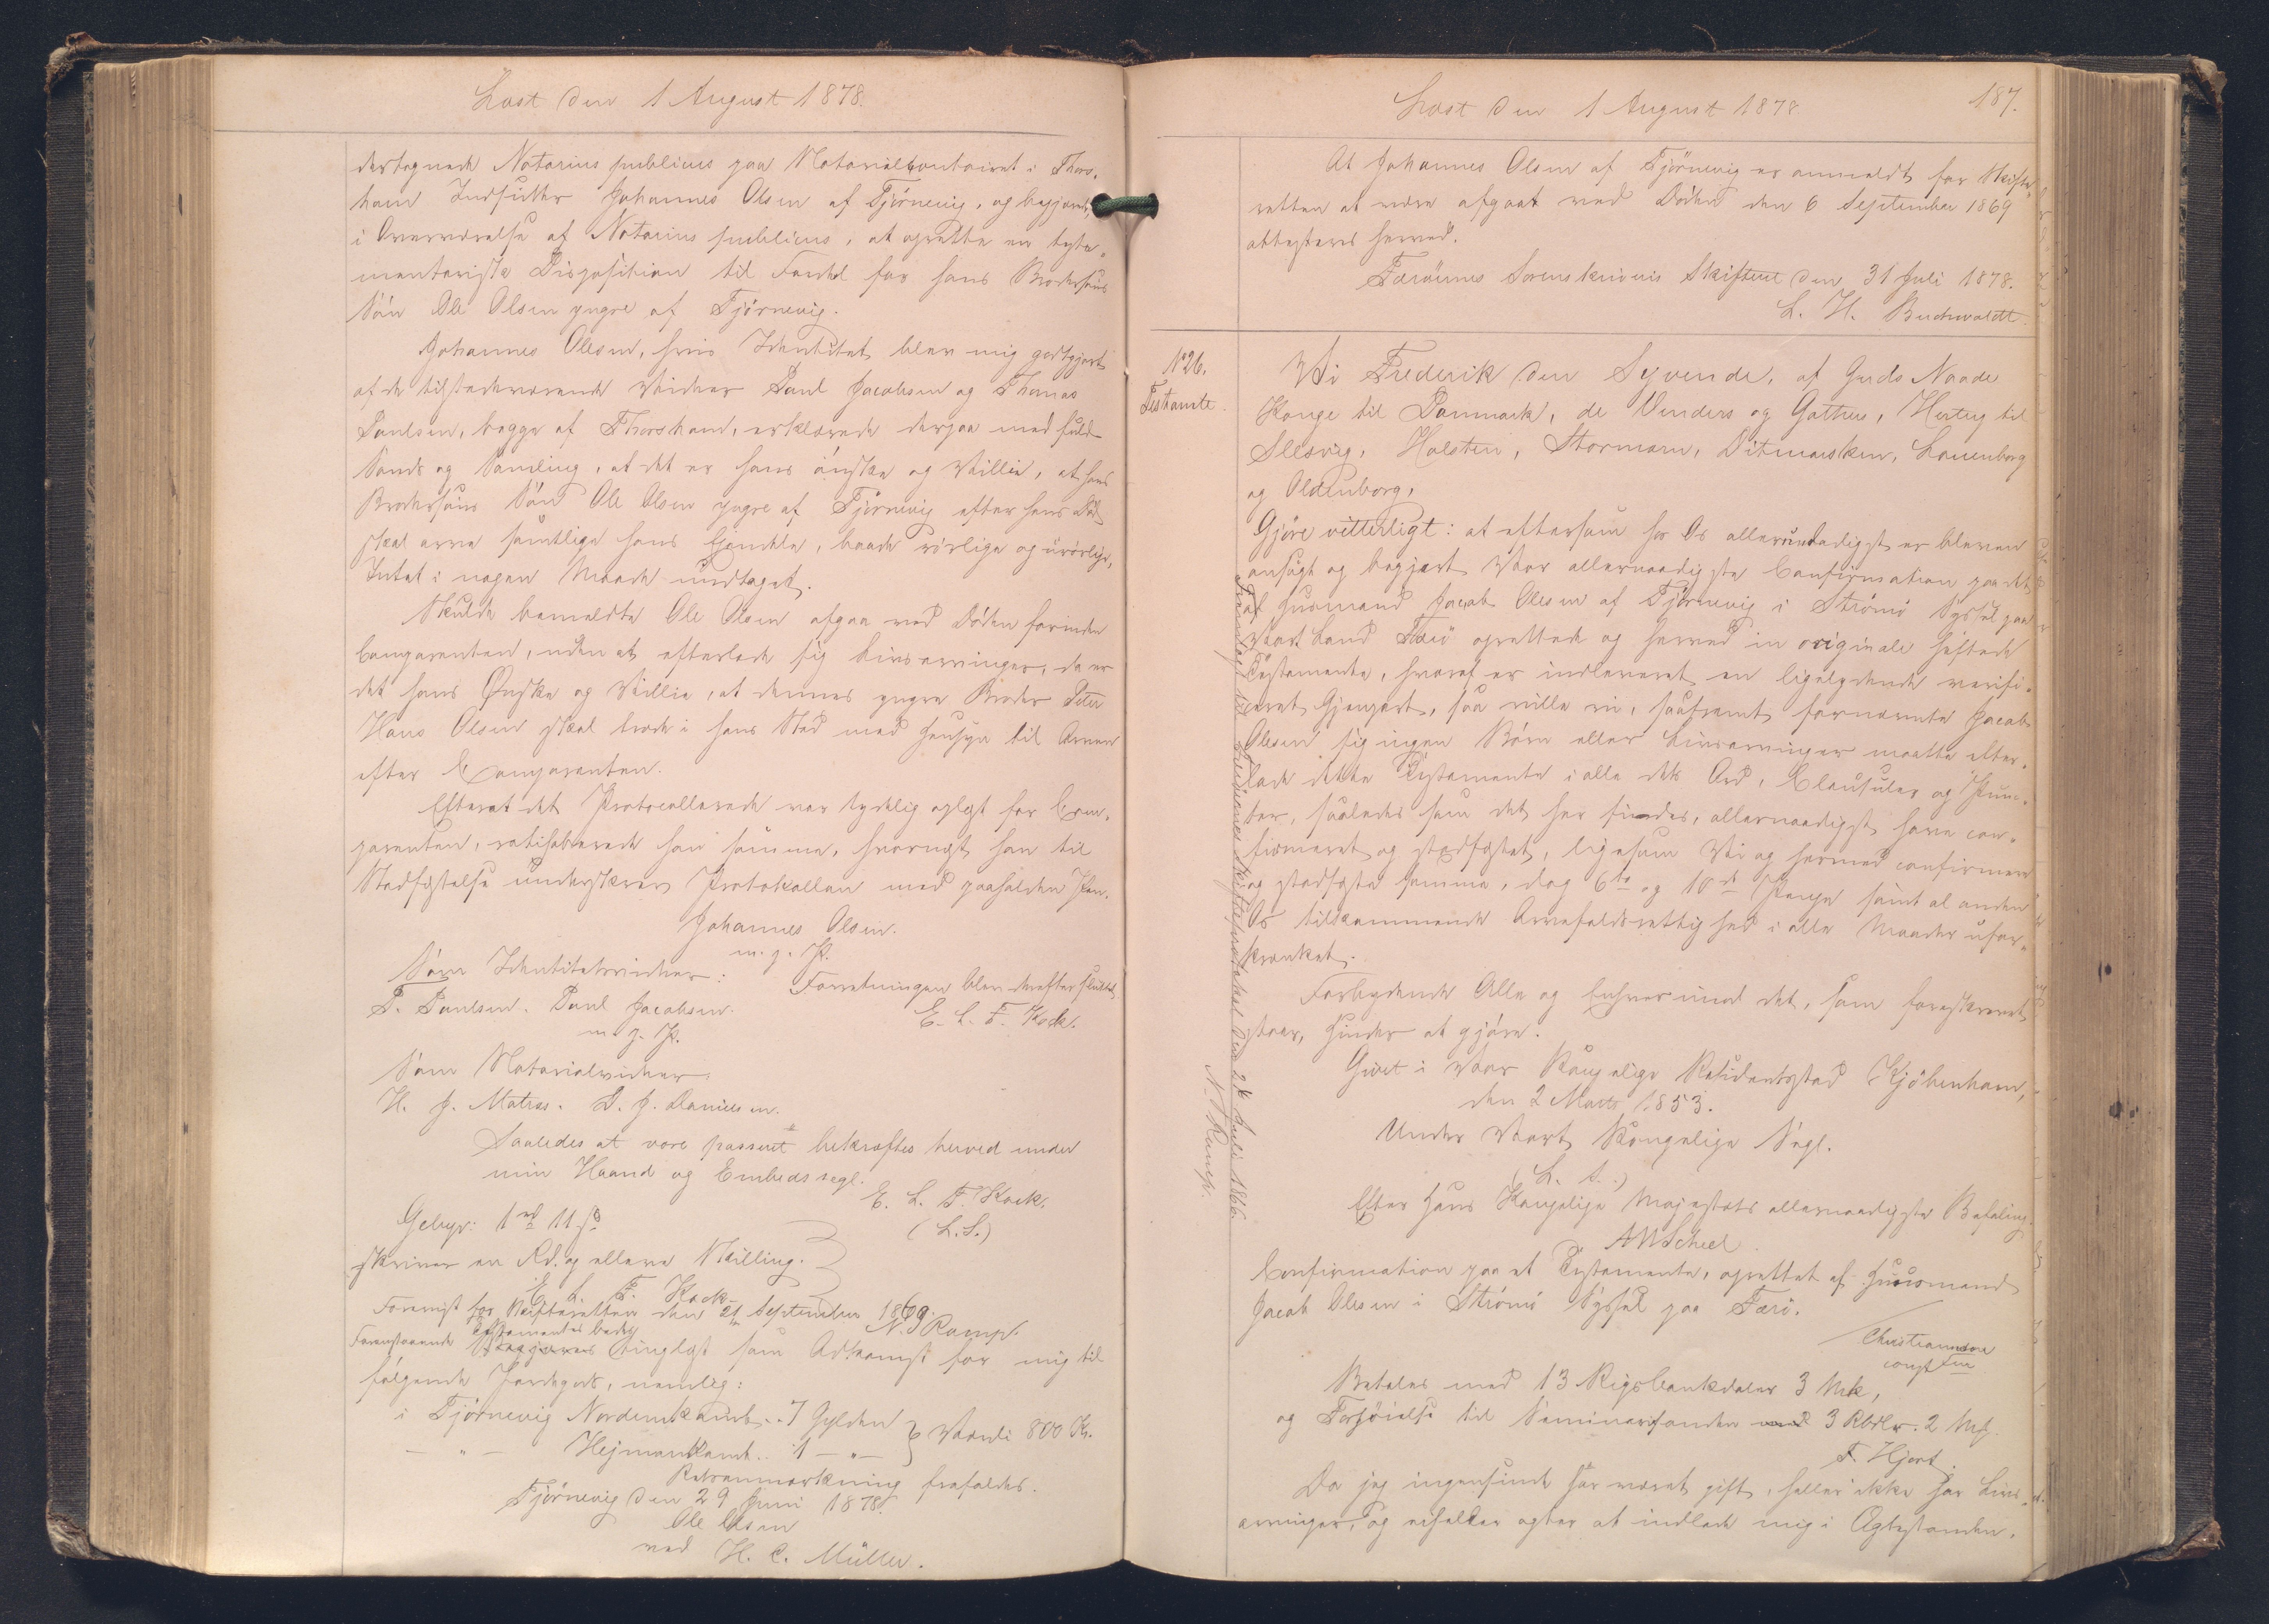 Læst den 1 August 1878.
dertegnede Notarius publicus paa Notarialcontoiret i Thors-
havn Indsidder Johannes Olsen af Tjørnevig, og begjærede,
i Overværelse af Notarius publicus, at oprette en testa-
mentarisk Disposition til Fordel for hans Brodersøns
Søn Ole Olsen yngre af Tjørnevig.
Johannes Olesen, hvis Identitet blev mig godtgjort
af de tilstedeværende Vidner Paul Jacobsen og Thomas
Paulsen, begge af Thorshavn, erklærede derpaa med fuld
Sands og Samling, at det er hans ønske og Villie, at hans
Brodersøns Søn Ole Olsen yngre af Tjørnevig efter hans Død
skal arve samtlige hans Ejendele, baade rørlige og urørlige,
Intet i nogen Maade undtaget.
Skulde bemeldte Ole Olsen afgaa ved Døden forinden
Comparenten, uden at efterlade sig Livsarvinger, da er
det hans Ønske og Villie, at dennes yngre Broder Peter
Hans Olsen skal træde i hans Sted med Hensyn til Arven
efter Comparenten.
Efterat det Protocollerede var tydelig oplæst for Com-
parenten, ratihaberede han samme, hvornæst han til
Stadfæstelse underskrev Protokollen med paaholden Pen.
Johannes Olsen.
m. p. P.
Som Identitetsvidner: Forretningen blev derefter sluttet
T. Paulsen. Paul Jacobsen. E. L. F. Kock.
m. p. P.
Som Notarialvidner:
H. J. Matras. D. J. Danielsen.
Saaledes at være passeret bekræftes herved under
min Haand og Embedssegl.
E. L. F. Kock.
(L.S.)
Gebyr: 1 rd 11 sk
skriver en Rd. og elleve Skilling.
E. L. F. Kock
Forevist for Skifteretten den 21 September 1869.
N. Ramp.
Foranstaaende Testamentes bedes
tinglæst som Adkomst for mig til
følgende Jordegods, nemlig:
i Tjørnevig Nordenskamb.. 7 Gylden } Værdi 800 Kr.
— " — Hejmanskamb.. 1 — " —
Retsanmærkning frafaldes.
Tjørnevig den 29 Juni 1878.
Ole Olsen
ved H. C. Müller.
Læst den 1 August 1878
187.
At Johannes Olsen af Tjørnevig er anmeldt for Skifte-
retten at være afgaaet ved Døden den 6 September 1869
attesteres herved.
Færøernes Sorenskriveris Skifteret den 31 Juli 1878.
L. H. Buchwaldt
No 26.
Testamte.
Vi Frederik den Syvende, af Guds Naade
Konge til Danmark, de Venders og Gothers, Hertug til
Slesvig, Holsten, Stormarn, Ditmarsken, Lauenborg
og Oldenborg,
Gjøre vitterligt: at eftersom hos Os allerunderdanigst er bleven
ansøgt og begjært Vor allernaadigste Confirmation paa det
af Huusmand Jacob Olesen af Tjørnevig i Strømø Syssel paa
Vort Land Færø oprettede og herved in originale hæftede
Testamente, hvoraf er indleveret en ligelydende verifi-
ceret Gjenpart, saa ville vi, saafremt fornævnte Jacob
Olesen sig ingen Børn eller Livsarvinger maatte efter-
lade dette Testamente i alle dets Ord, Clausuler og Punc-
ter, saaledes som det her findes, allernaadigst have con-
firmeret og stadfæstet, ligesom Vi og hermed confirmere
og stadfæste samme, dog 6te og 10de Penge samt al anden
Os tilkommende Arvefaldsrettighed i alle Maader ufor-
krænket.
Forbydende Alle og Enhver imod det, som foreskrevet
staar, Hinder at gjøre.
Givet i Vor Kongelige Residentsstad Kjøbenhavn,
den 2 Marts 1853.
Under Vort Kongelige Segl.
(L. S.)
Efter Hans Kongelige Majestæts allernaadigste Befaling.
AW Scheel.
Confirmation paa et Testamente, oprettet af Huusmand
Jacob Olesen i Strømø Syssel paa Færø.
Christiansen
const Fm
Betales med 13 Rigsbankdaler 3 Mk,
og Forhøielse til Seminariefonden 3 Rbdlr. 2 Mk.
F. Hjort.
Da jeg ingensinde har været gift, heller ikke har Livs-
arvinger, og eiheller agter at indlade mig i Ægtestanden,
Fremlagt ved Færøernes Skifteforvaltning den 24 Juli 1866.
N Ramp.